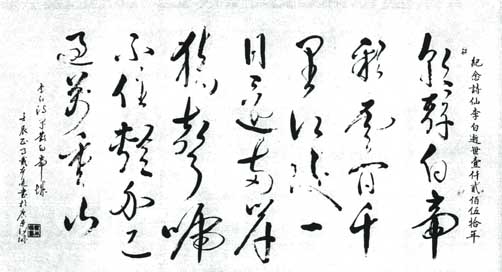 紀念詩仙李白逝世壹仟貳佰伍拾年
朝辭白帝
彩雲間千
里江陵一
日還兩岸
猿聲啼
不住輕舟已
過萬重山
李白詩早發白帝城
壬辰